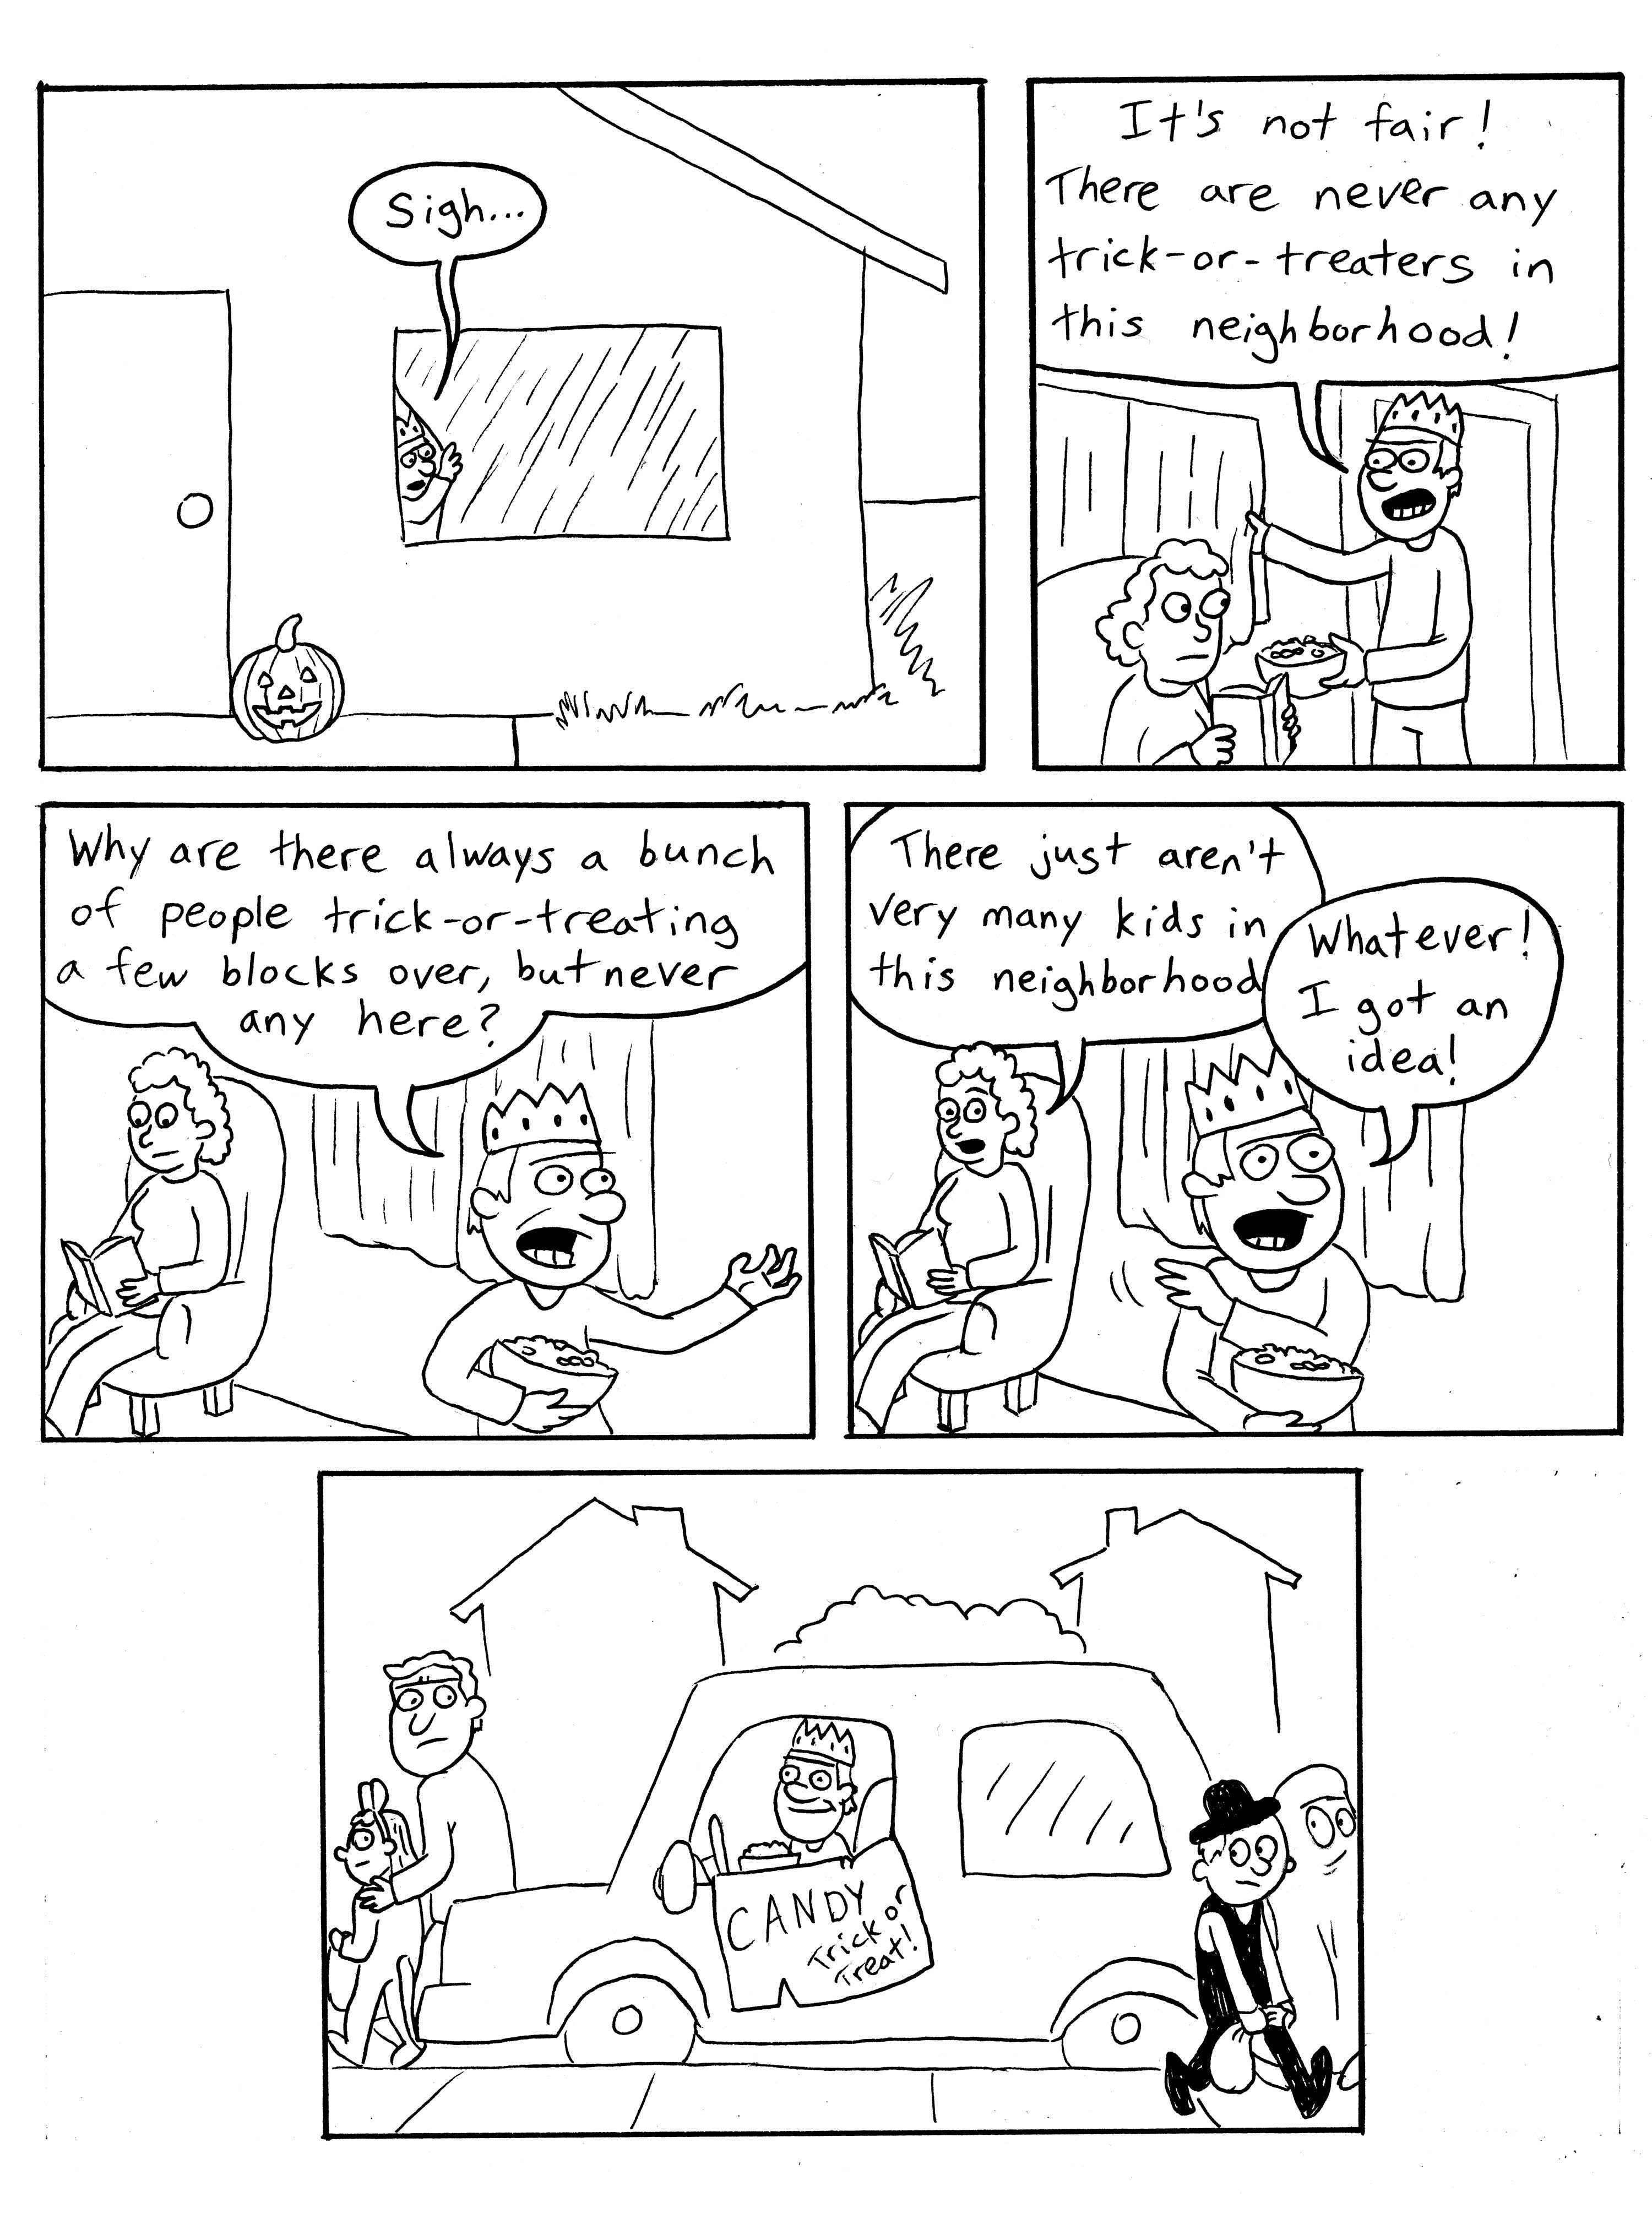 Sigh...
It's not fair!
There are never any
trick-or-treaters in
this neighborhood!
Why are there always a bunch
of people trick-or-treating
a few blocks over, but never
any here?
There just aren't
very many kids in
this neighborhood
Whatever!
I got an
idea!
CANDY
Trick or
Treat!